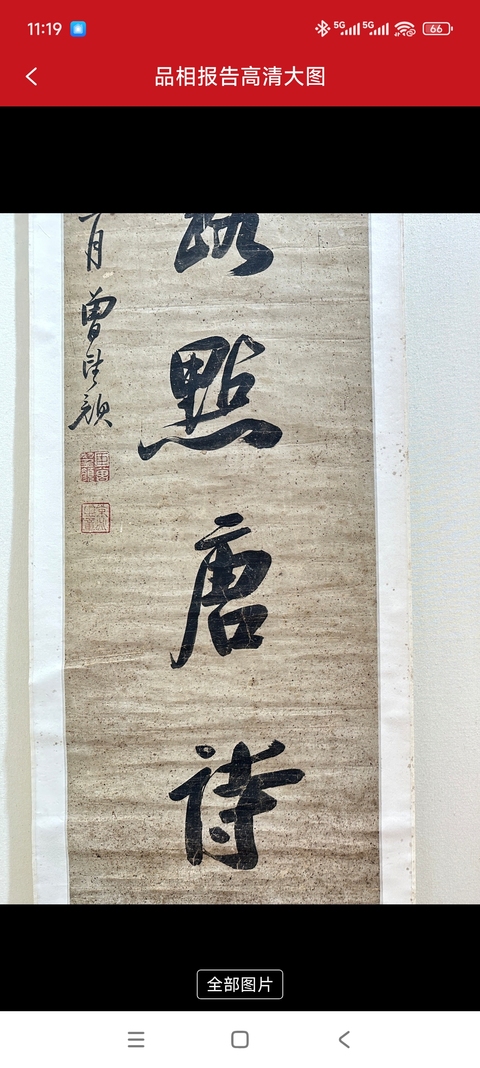 11:19
5G
5G
66
品相报告高清大图
點
唐
詩
月
曾望顏
全部图片